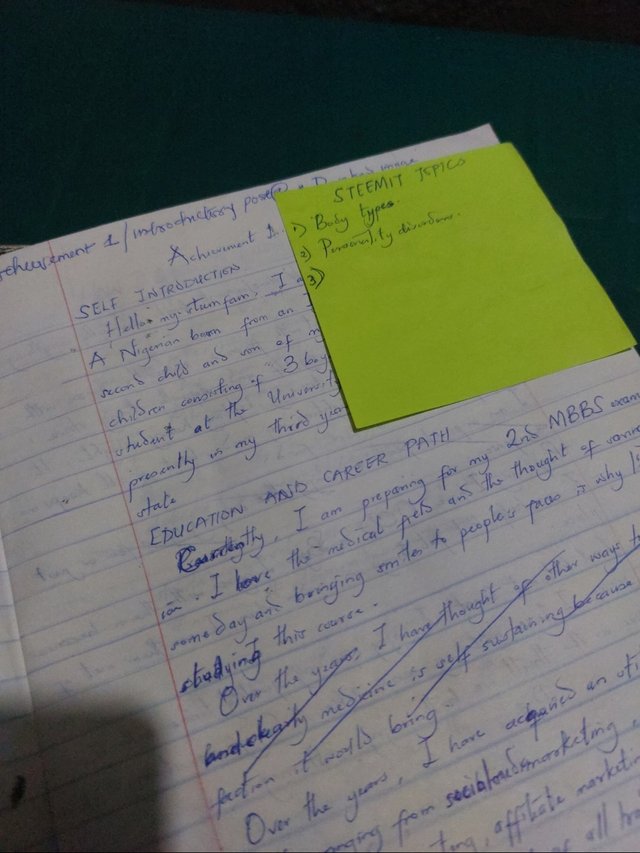 Achievement 1/introductory post
STEEMIT TOPICS
1) Body types.
2) Personality disorders.
3)
Achievement 1.
SELF INTRODUCTION
Hello my steem fam, I
A Nigerian born from an
second child and son of my
children consisting of 3 boy
student at the University
presently in my third year
state
EDUCATION AND CAREER PATH
Currently, I am preparing for my 2nd MBBS exam
ion. I love the medical field and the thought of
someday and bringing smiles to people's faces is why I
studying this course.
Over the years, I have thought of other ways to
and clearly medicine is self sustaining because
faction it would bring.
Over the years, I have acquired an
ranging from social media marketing
affiliate marketing
all